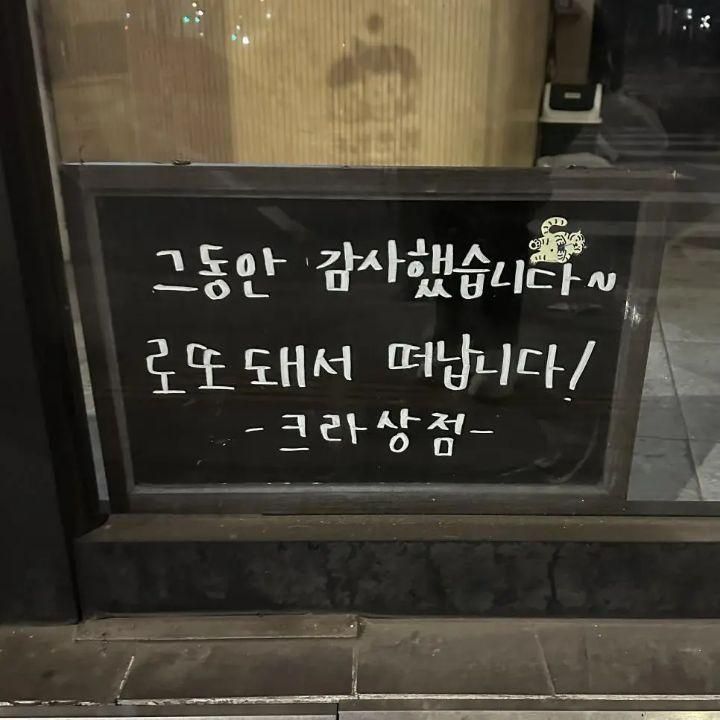 그동안 감사했습니다~
로또 돼서 떠납니다!
-크라상점-